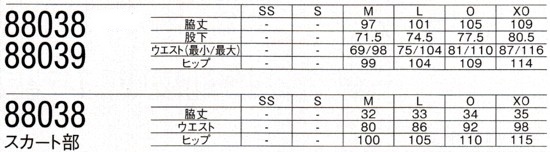 88038
88039
SS S M L O XO
脇丈 - - 97 101 105 109
股下 - - 71.5 74.5 77.5 80.5
ウエスト(最小/最大) - - 69/98 75/104 81/110 87/116
ヒップ - - 99 104 109 114
88038
スカート部
SS S M L O XO
脇丈 - - 32 33 34 35
ウエスト - - 80 86 92 98
ヒップ - - 100 105 110 115